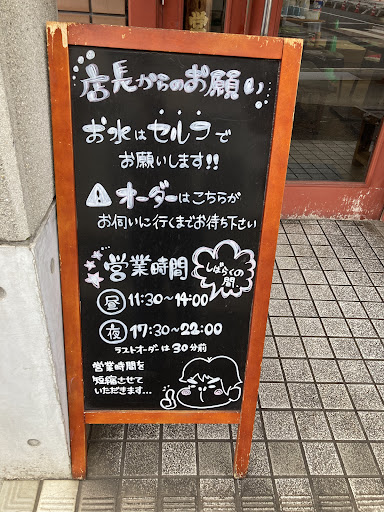 店長からのお願い
お水はセルフで
お願いします!!
オーダーはこちらが
お伺いに行くまでお待ち下さい
営業時間
しばらくの
間、
昼 11:30~14:00
夜 17:30~22:00
ラストオーダーは30分前
営業時間を
短縮させて
いただきます...